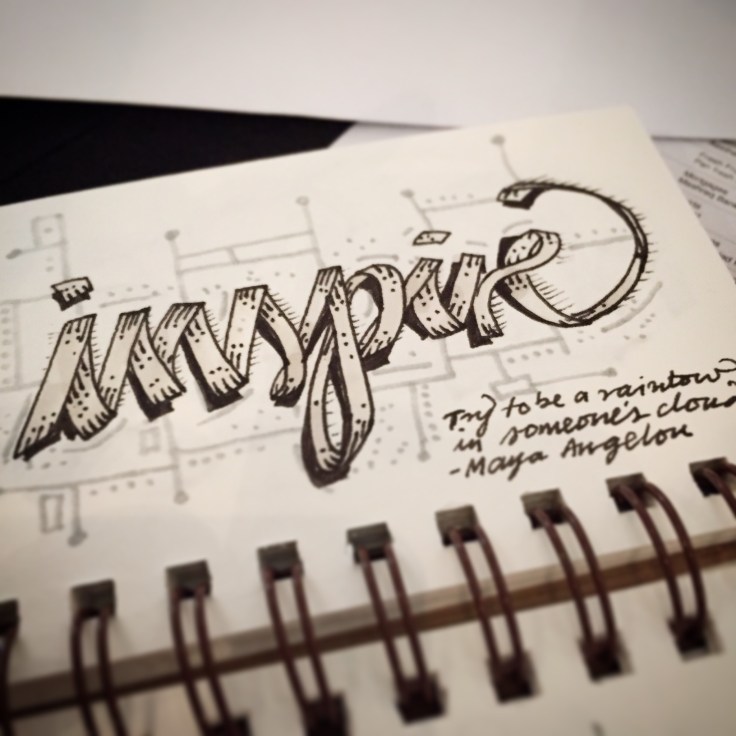 inspire
Try to be a rainbow
in someone's cloud
-Maya Angelou